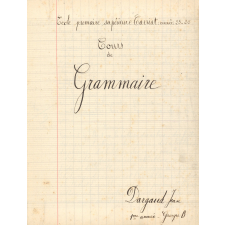 Ecole primaire supérieure Carnot année
Cours
de
Grammaire
Dargaud Jean
1ère année. Groupe B